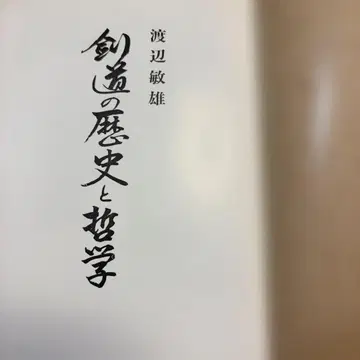 渡辺敏雄
剣道の歴史と哲学